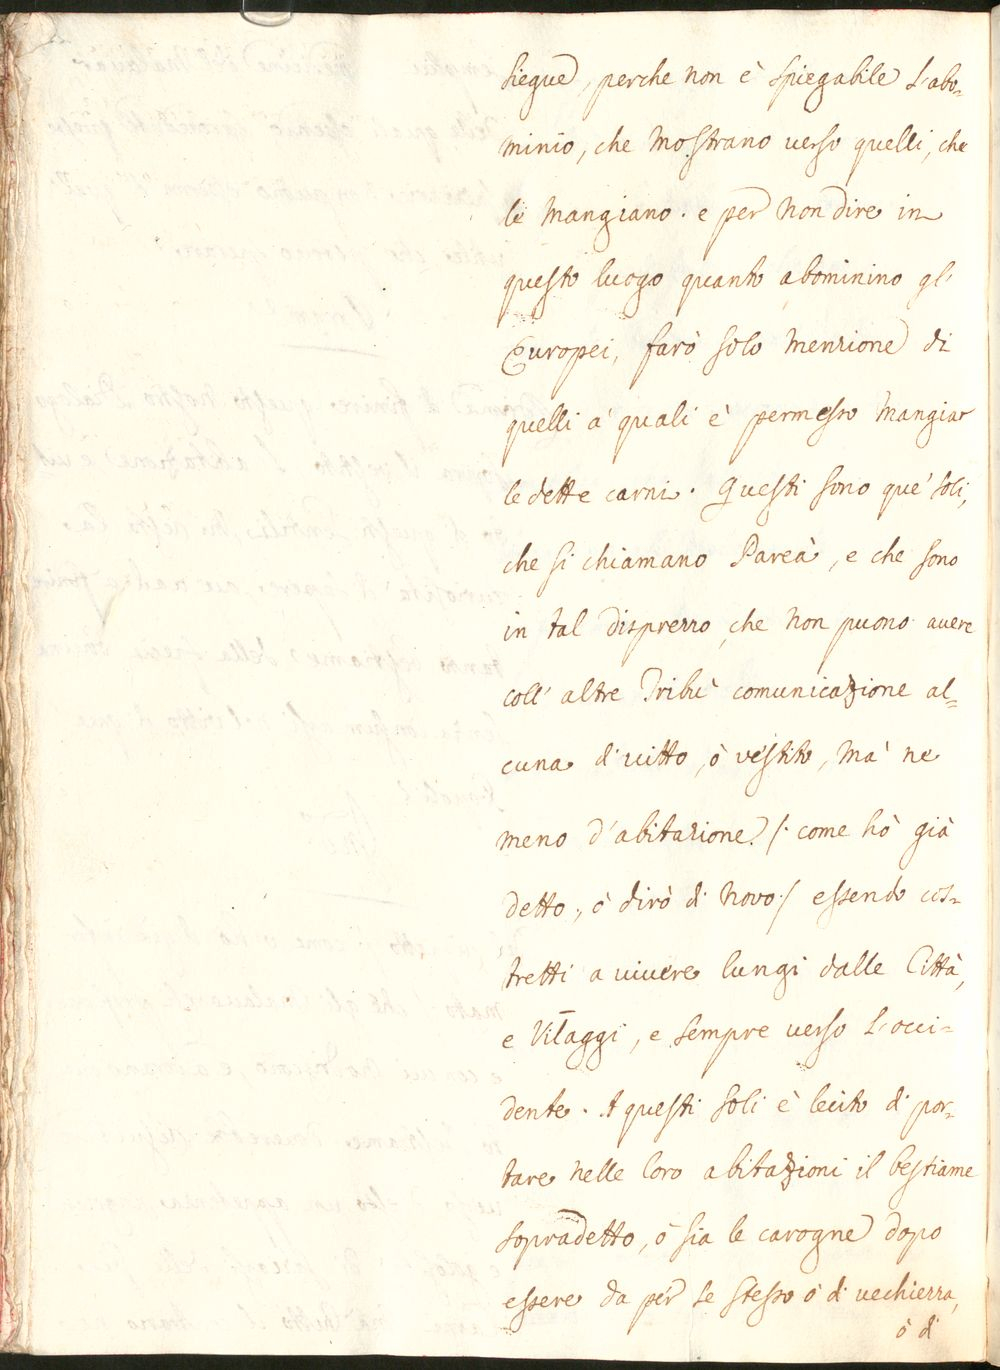 siegue, perche non è spiegabile l'abo-
minio, che mostrano verso quelli, che
le mangiano. e per non dire in
questo luogo quanto abominino gl'
Europei, farò solo menzione di
quelli a' quali è permesso mangiar
le dette carni. Questi sono que' soli,
che si chiamano Pareà, e che sono
in tal disprezzo, che non puono avere
coll' altre Tribù comunicazione al-
cuna di vitto, ò vestito, mà ne
meno d'abitazione (: come hò già
detto, ò dirò di novo:) essendo cos-
tretti a vivere lungi dalle Città,
e Villaggi, e sempre verso l'occi-
dente. A questi soli è lecito di por-
tare nelle loro abitazioni il bestiame
sopradetto, ò sia le carogne dopo
essere da per se stesso ò di vechiezza,
ò di